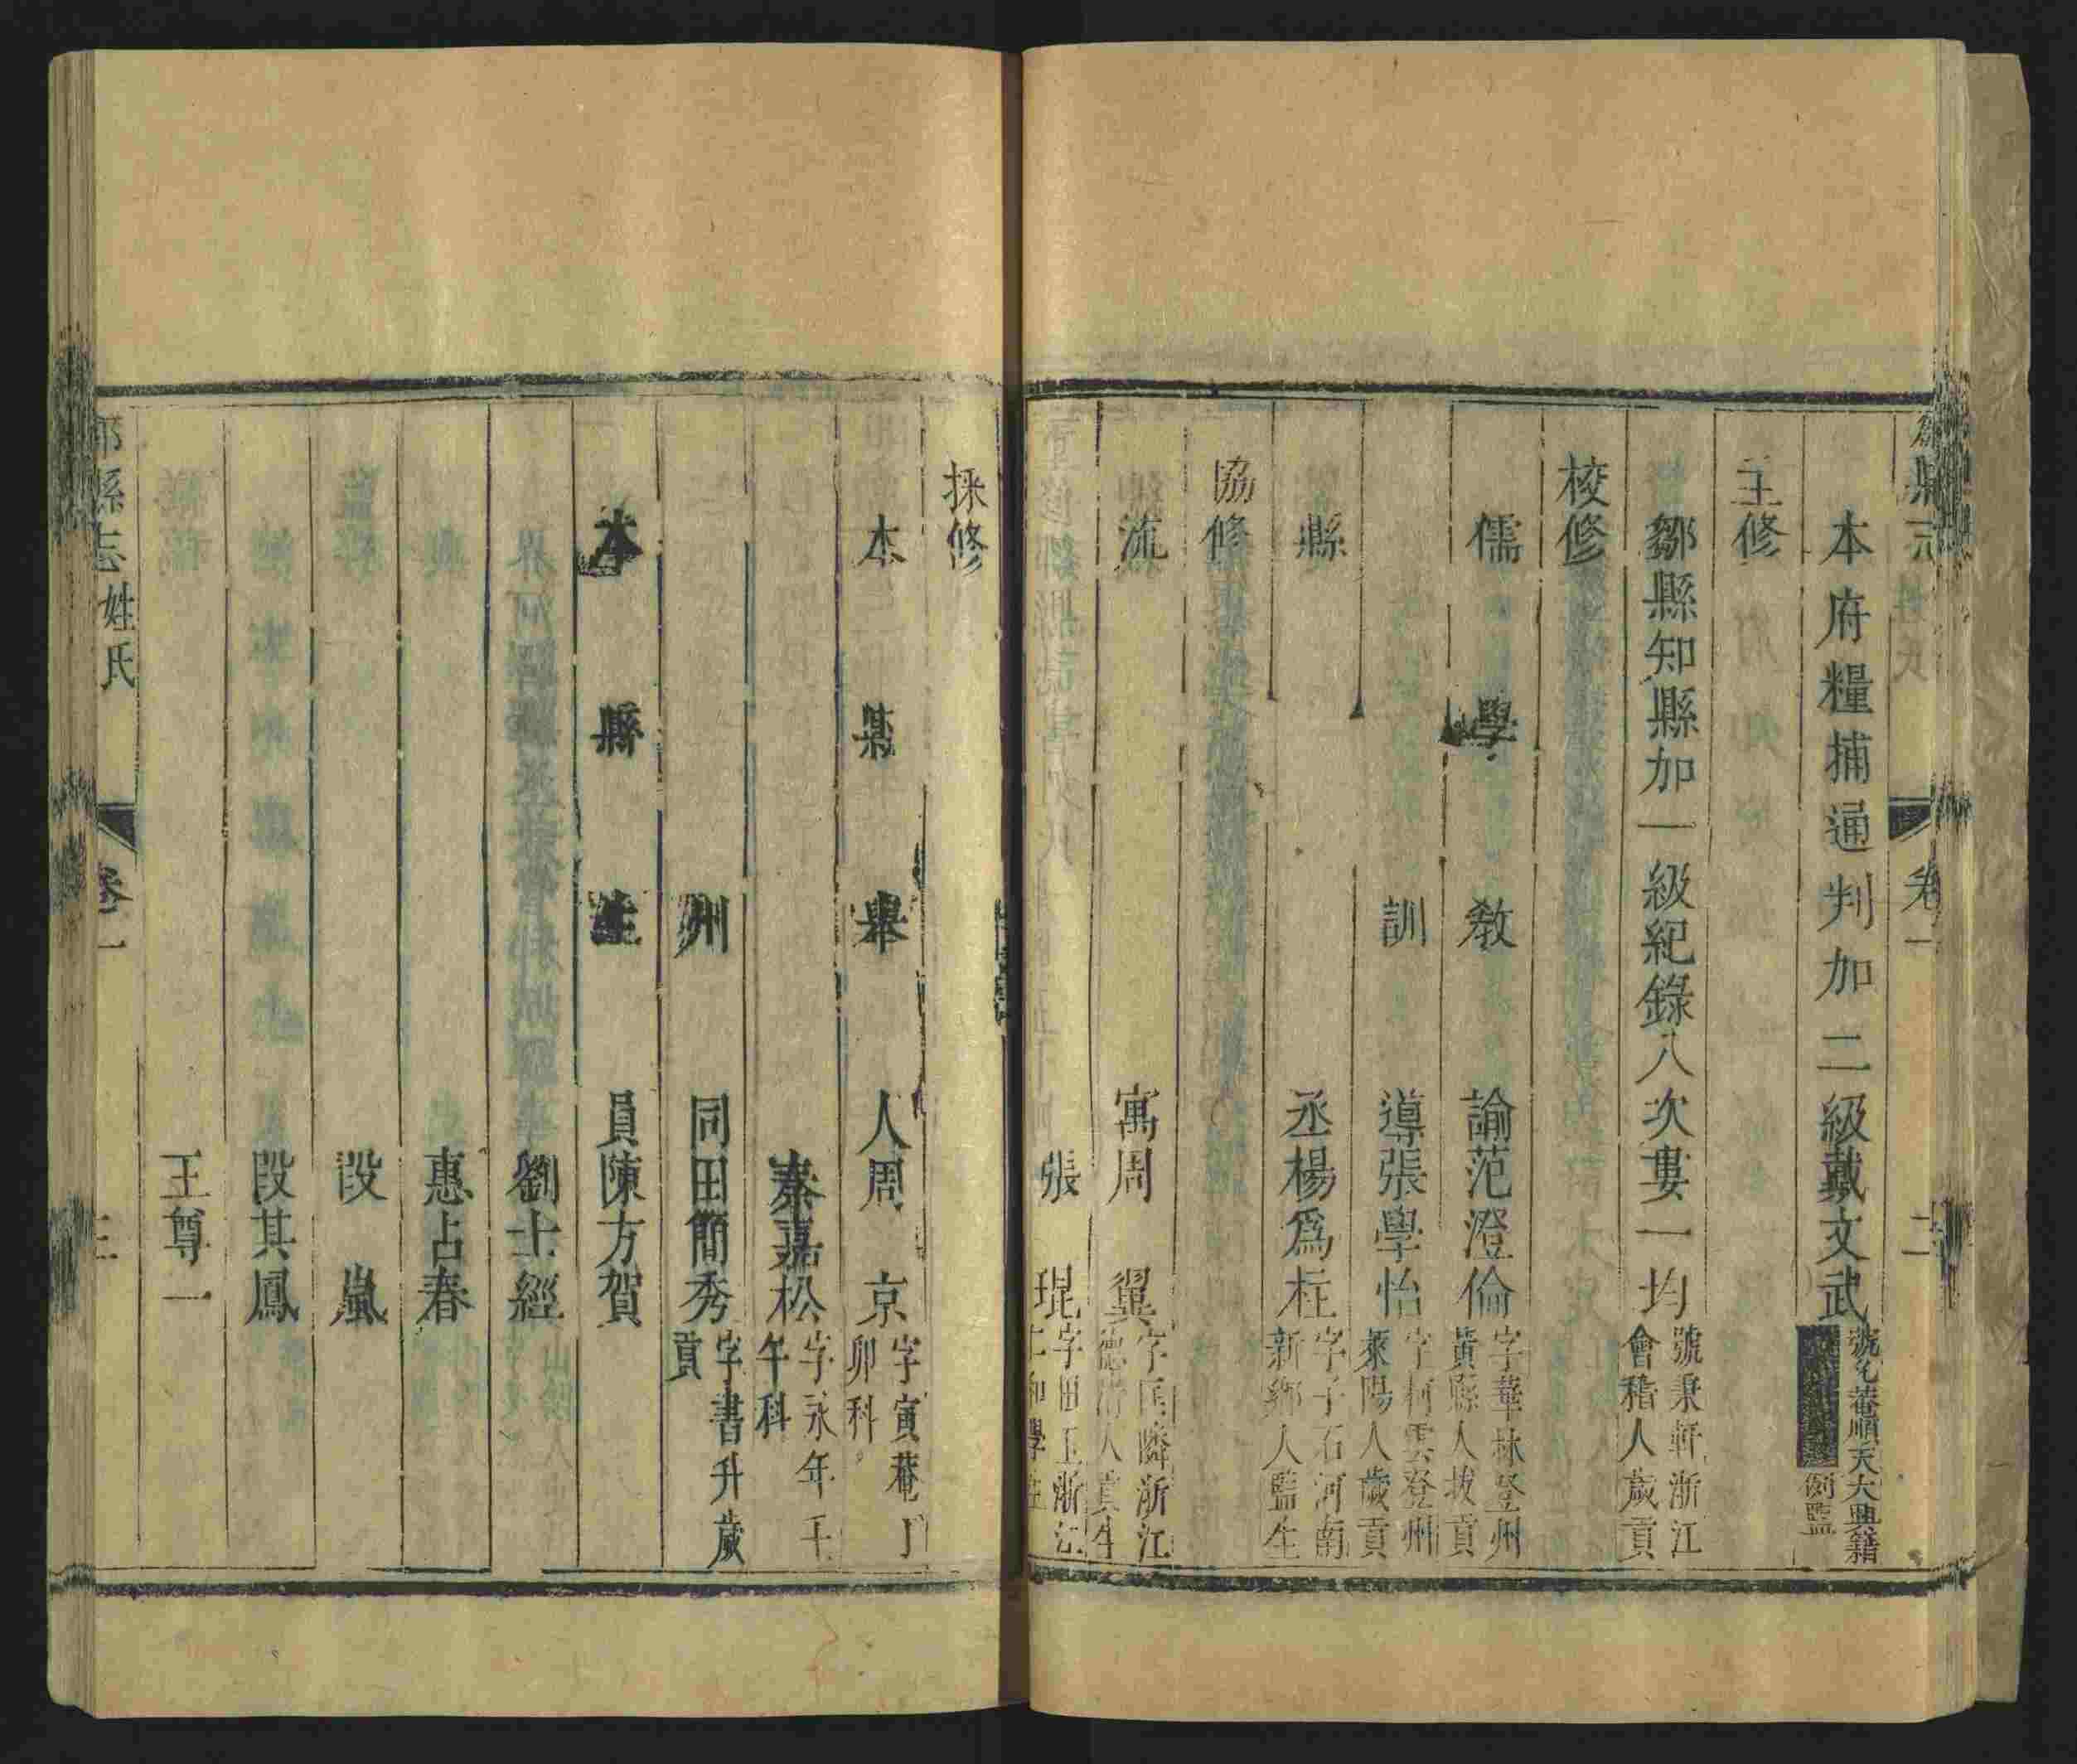 縣志
卷一
二
本府糧捕通判加二級戴文武
菴順天大興籍
例監
主修
鄒縣知縣加一級紀錄八次婁一均
號秉軒浙江
會稽人歲貢
校修
儒學教諭范澄倫
字華林登州
黃縣人拔貢
訓導張學怡
字柯雲登州
萊陽人歲貢
縣丞楊爲柱
字子石河南
新鄉人監生
協修
流寓周翼
字匡隣浙江
德清人貢生
張琨
字田玉浙江
仁和學生
採修
本縣舉人周京
字寅菴丁
卯科
秦嘉松
字永年壬
午科
州同田簡秀
字書升歲
貢
本縣生員陳方賀
劉士經
惠占春
段嵐
段其鳳
王尊一
縣志
姓氏
卷一
三